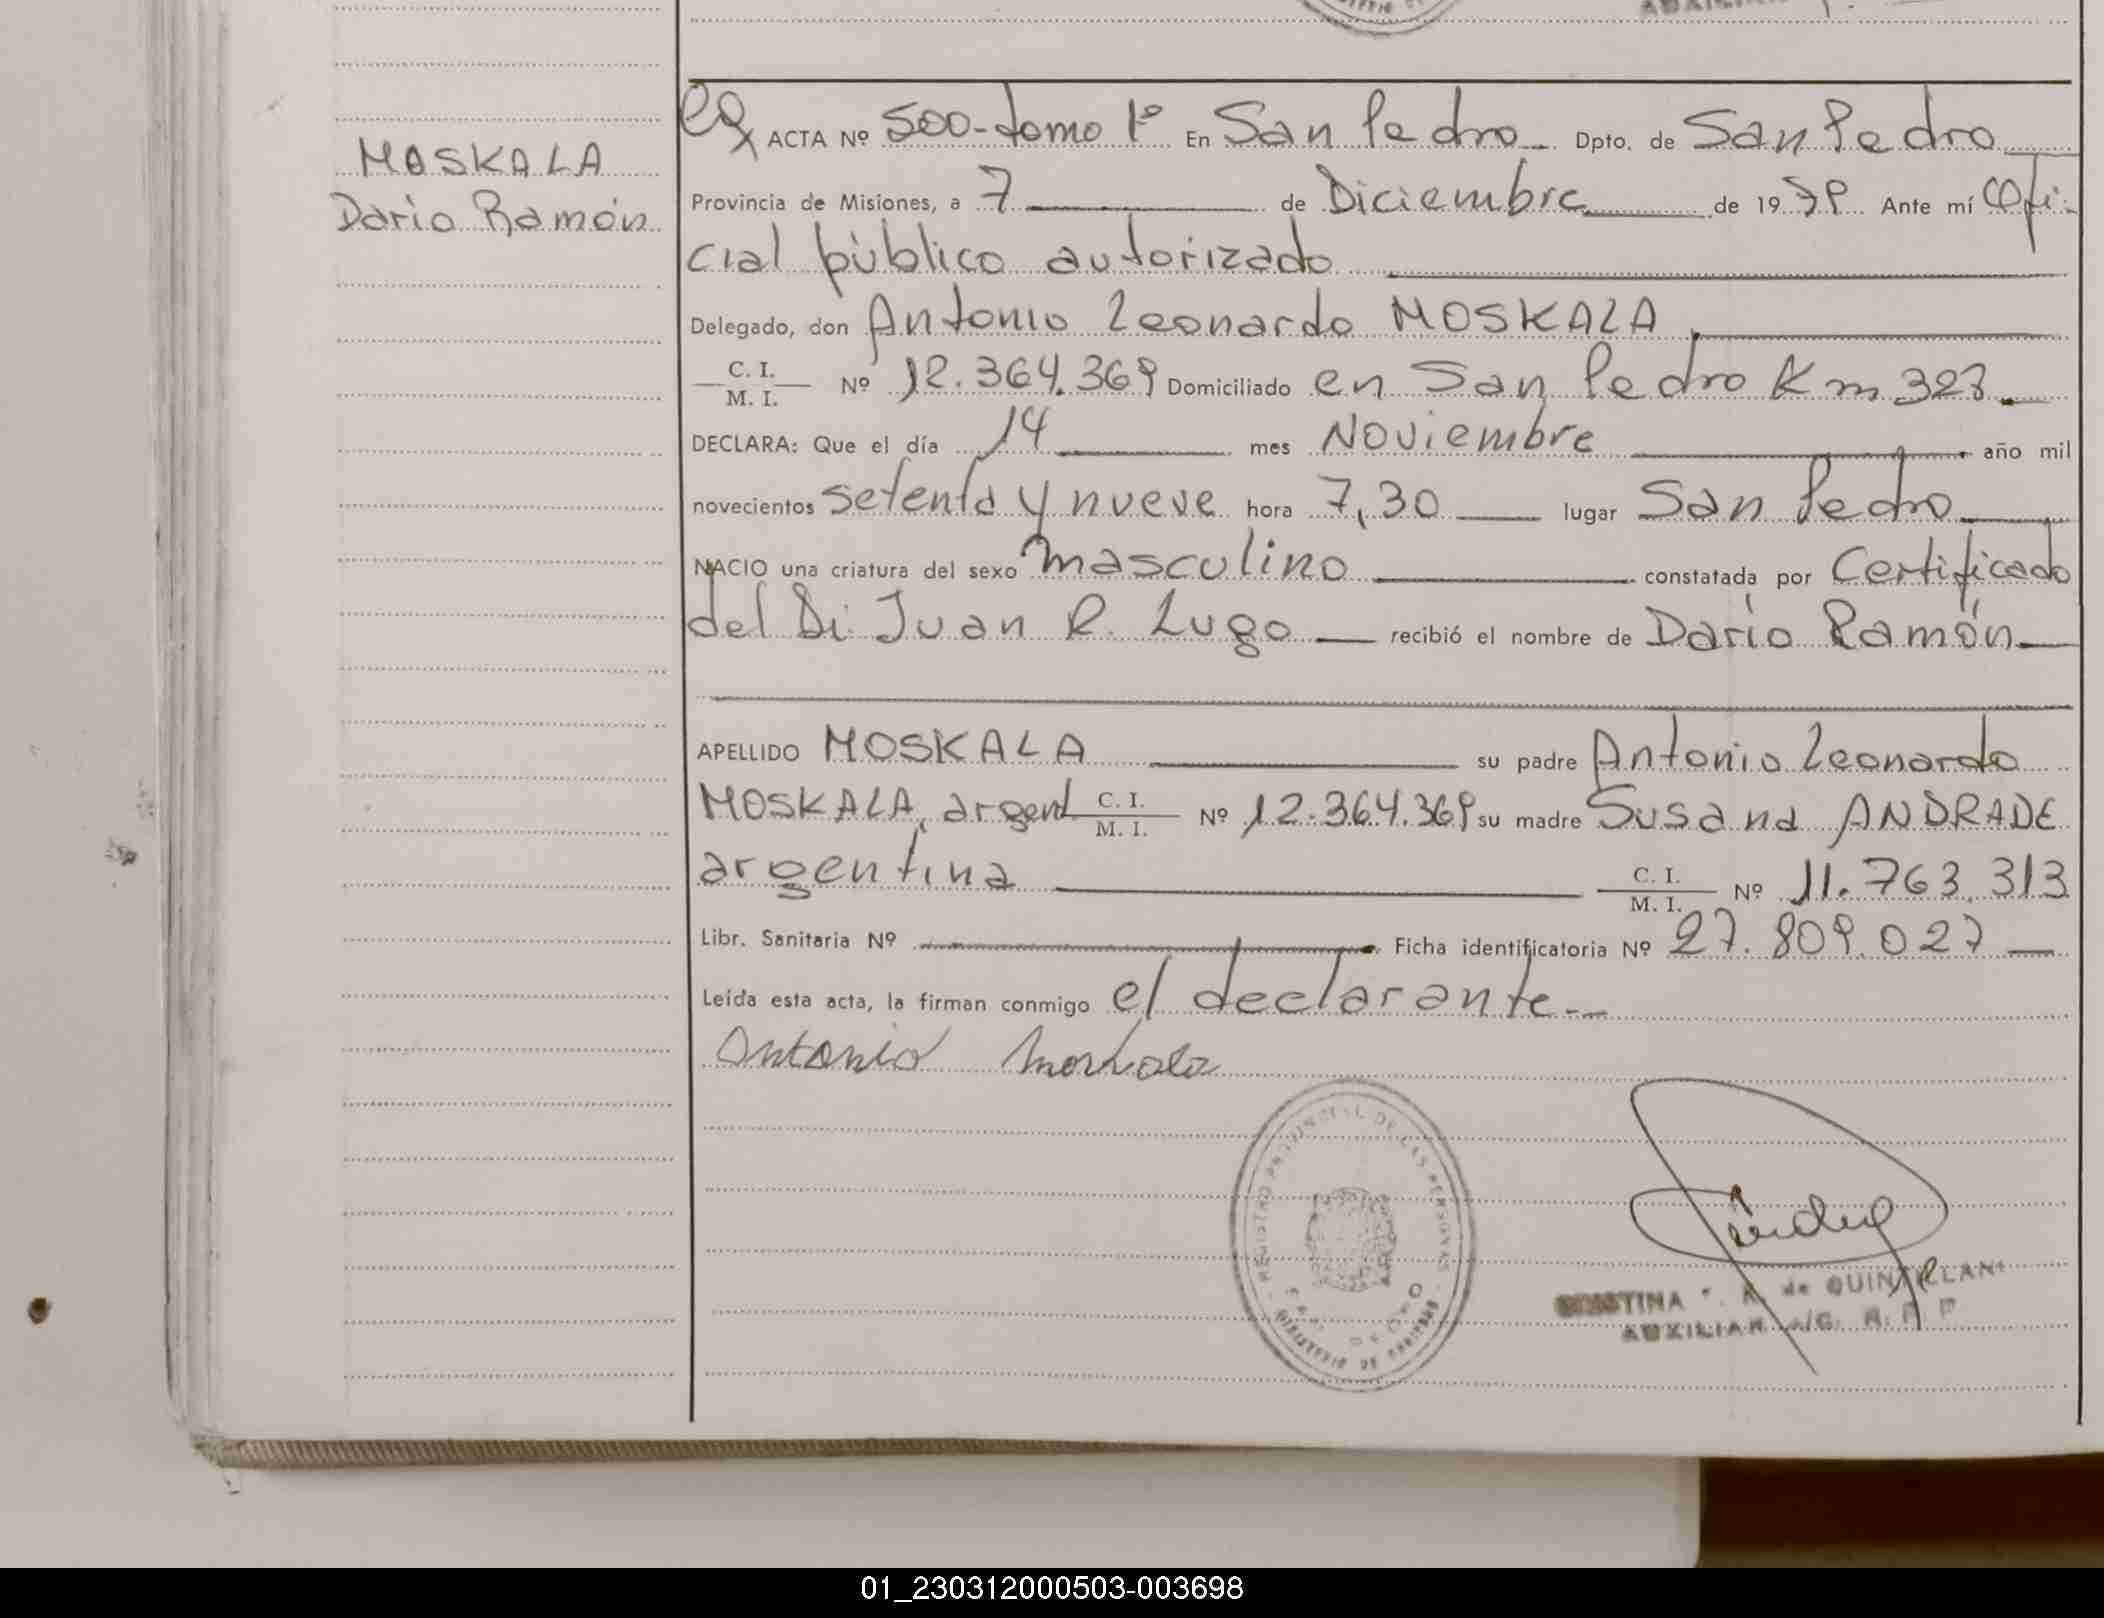 MOSKALA
Darío Ramón
ACTA Nº 500-tomo 1º En San Pedro Dpto. de San Pedro
Provincia de Misiones, a 7 de Diciembre de 1979 Ante mí Ofi-
cial público autorizado
Delegado, don Antonio Leonardo MOSKALA
C. I.
M. I. Nº 12.364.369 Domiciliado en San Pedro Km 323
DECLARA: Que el día 14 mes Noviembre año mil
novecientos setenta y nueve hora 7,30 lugar San Pedro
NACIO una criatura del sexo masculino constatada por Certificado
del Dr. Juan R. Lugo recibió el nombre de Darío Ramón
APELLIDO MOSKALA su padre Antonio Leonardo
MOSKALA, argent C. I. M. I. Nº 12.364.369 su madre Susana ANDRADE
argentina C. I. M. I. Nº 11.763.313
Libr. Sanitaria Nº Ficha identificatoria Nº 27.809.027
Leída esta acta, la firman conmigo el declarante.-
Antonio Moskala
REGISTRO PROVINCIAL DE LAS PERSONAS
MINISTERIO DE GOBIERNO
CRISTINA de QUINTILLAN
AUXILIAR A/C. R. P. P
01_230312000503-003698